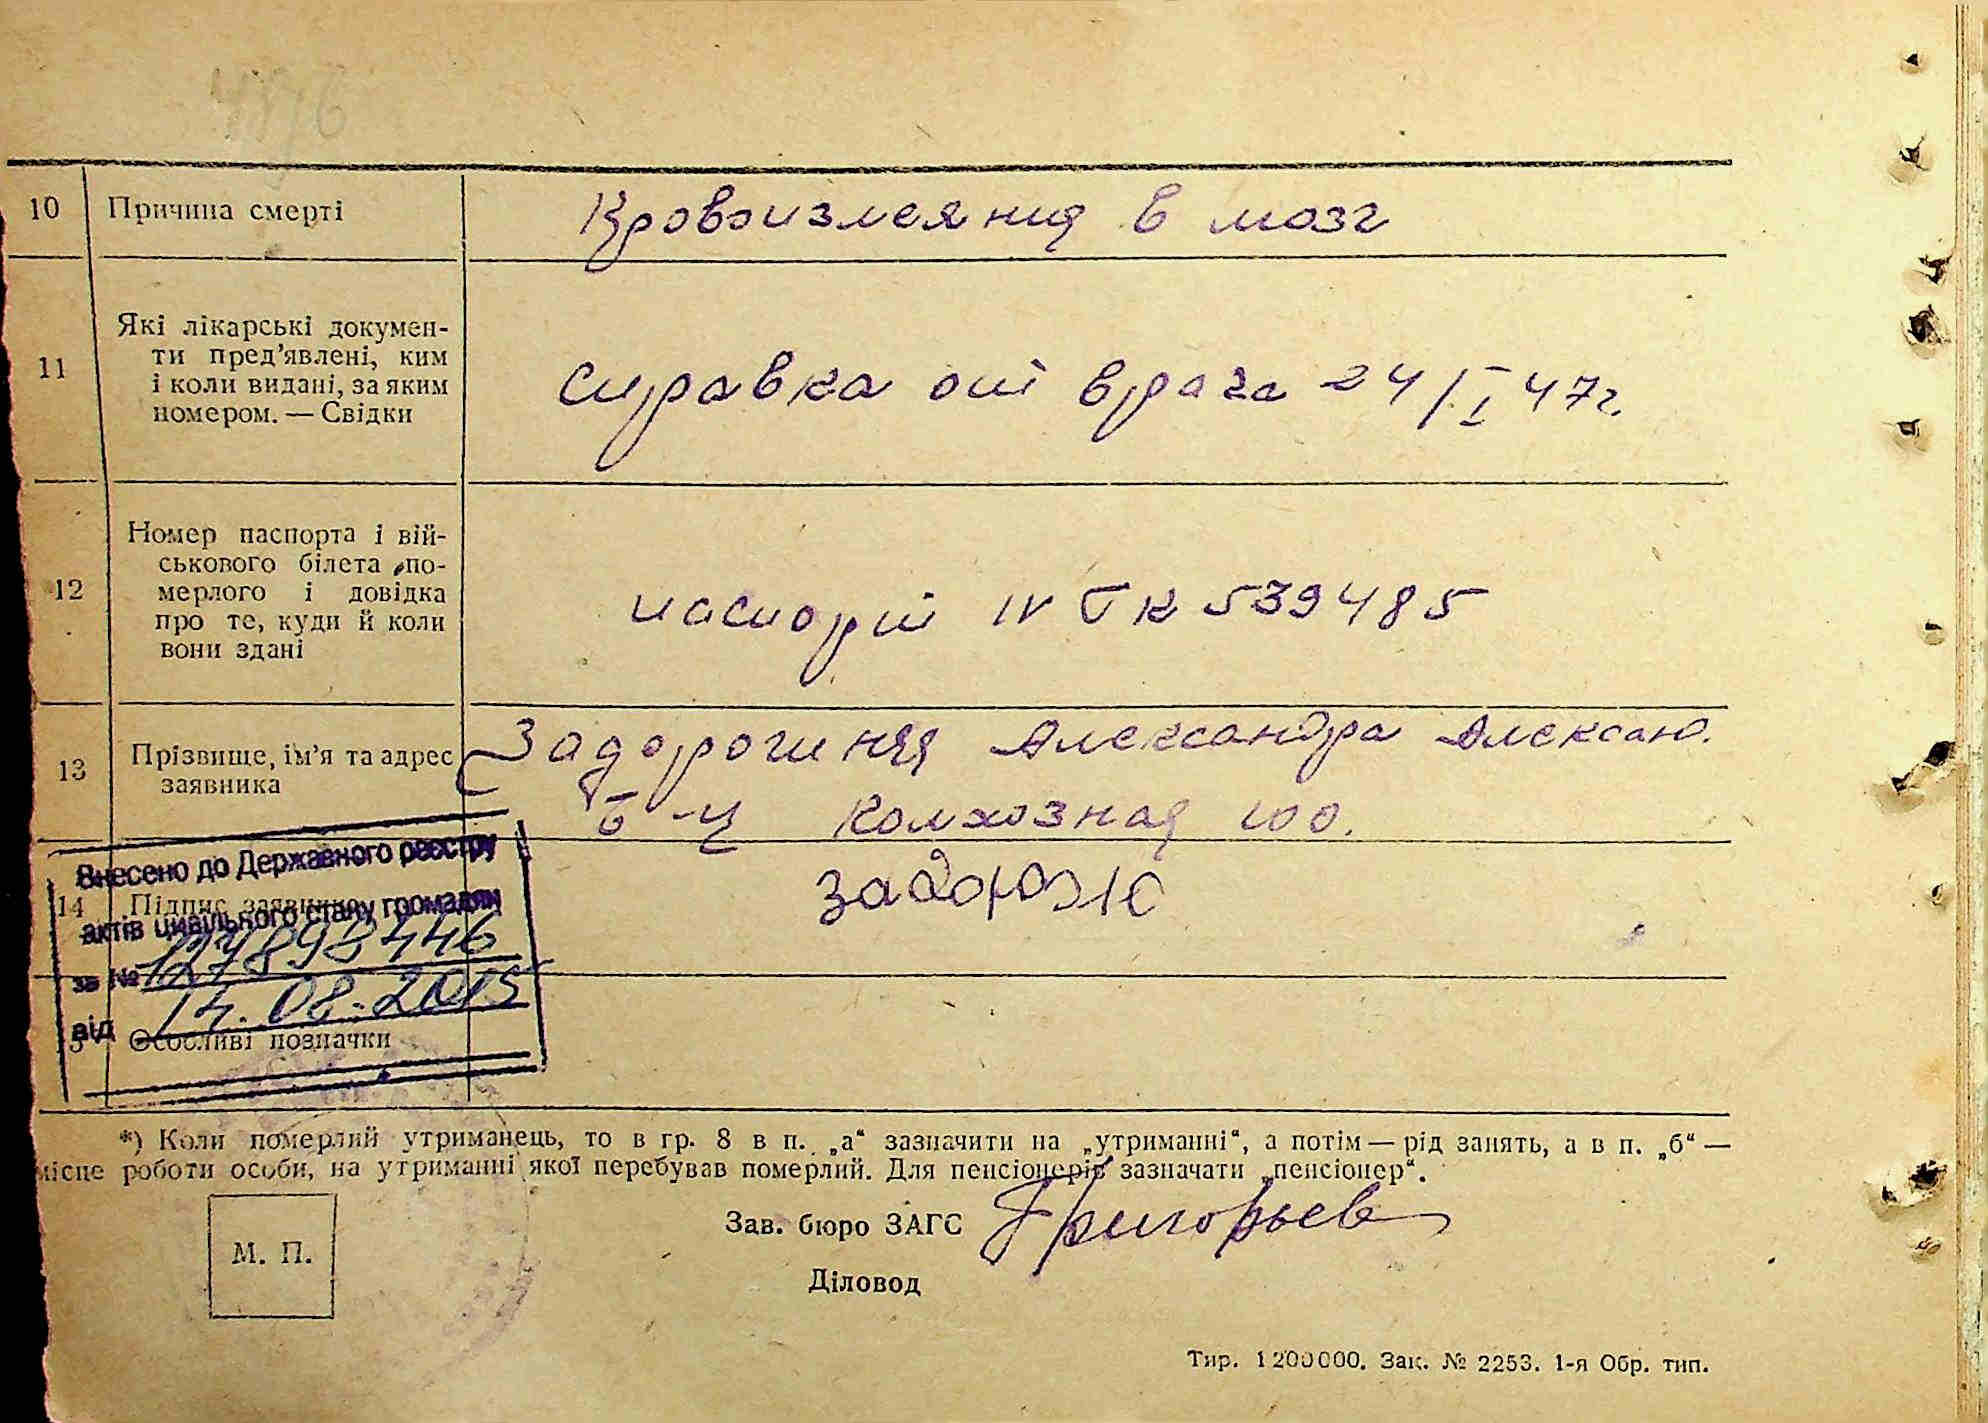 10 Причина смерті Кровоизлеяния в мозг
11 Які лікарські докумен-
ти пред’явлені, ким
і коли видані, за яким
номером. — Свідки
Справка от врача 24/I 47г.
12 Номер паспорта і вій-
ськового білета по-
мерлого і довідка
про те, куди й коли
вони здані
паспорт IV БК 539485
13 Прізвище, ім’я та адрес
заявника
Задорожняя Александра Алексан.
Колхозная 100.
14 Підпис заявника Задорож
Внесено до Державного реєстру
актів цивільного стану громадян
за № 127893446
від 14.08.2015
15 Особливі позначки
*) Коли померлий утриманець, то в гр. 8 в п. „а“ зазначити на „утриманні“, а потім — рід занять, а в п. „б“ —
місце роботи особи, на утриманні якої перебував померлий. Для пенсіонерів зазначати „пенсіонер“.
Зав. бюро ЗАГС Григорьев
М. П.
Діловод
Тир. 1200000. Зак. № 2253. 1-я Обр. тип.